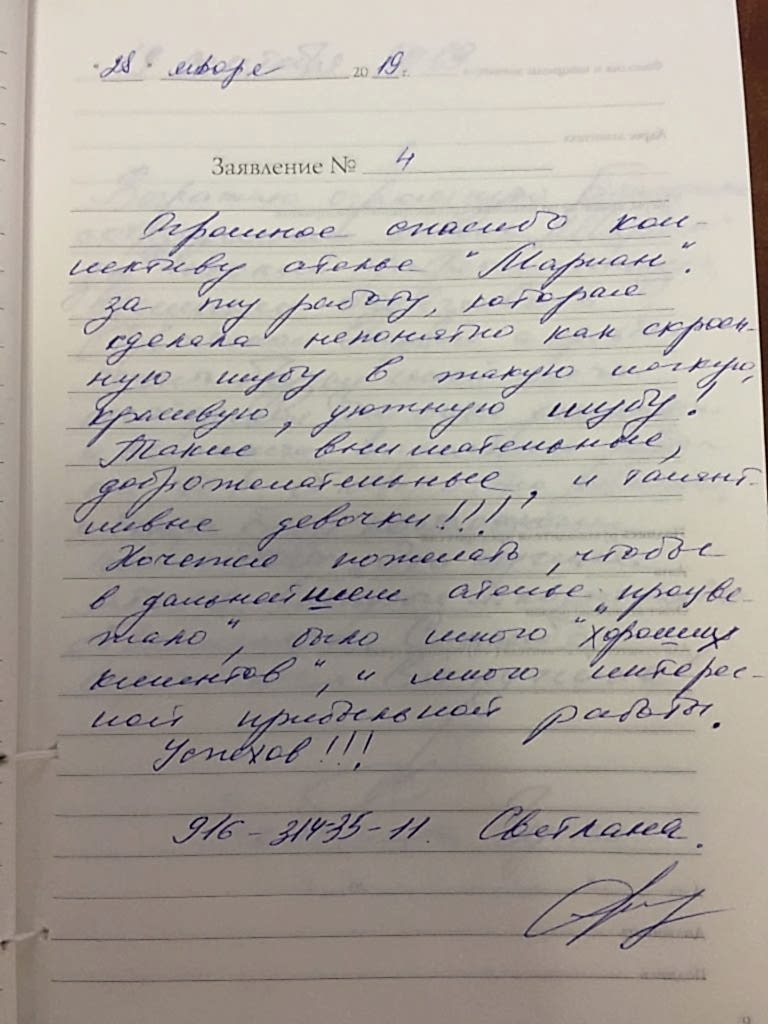 "28" января 2019 г.
Заявление № 4
Огромное спасибо кол-
лективу ателье "Мариан".
за ту работу, которая
сделала непонятно как скроен-
ную шубу в такую легкую,
красивую, уютную шубу!
Такие внимательные,
доброжелательные, и талант-
ливые девочки!!!
Хочется пожелать, чтобы
в дальнейшем ателье "процве-
тало", было много "хороших
клиентов", и много интерес-
ной прибыльной работы.
Успехов!!!
916-314-35-11. Светлана.